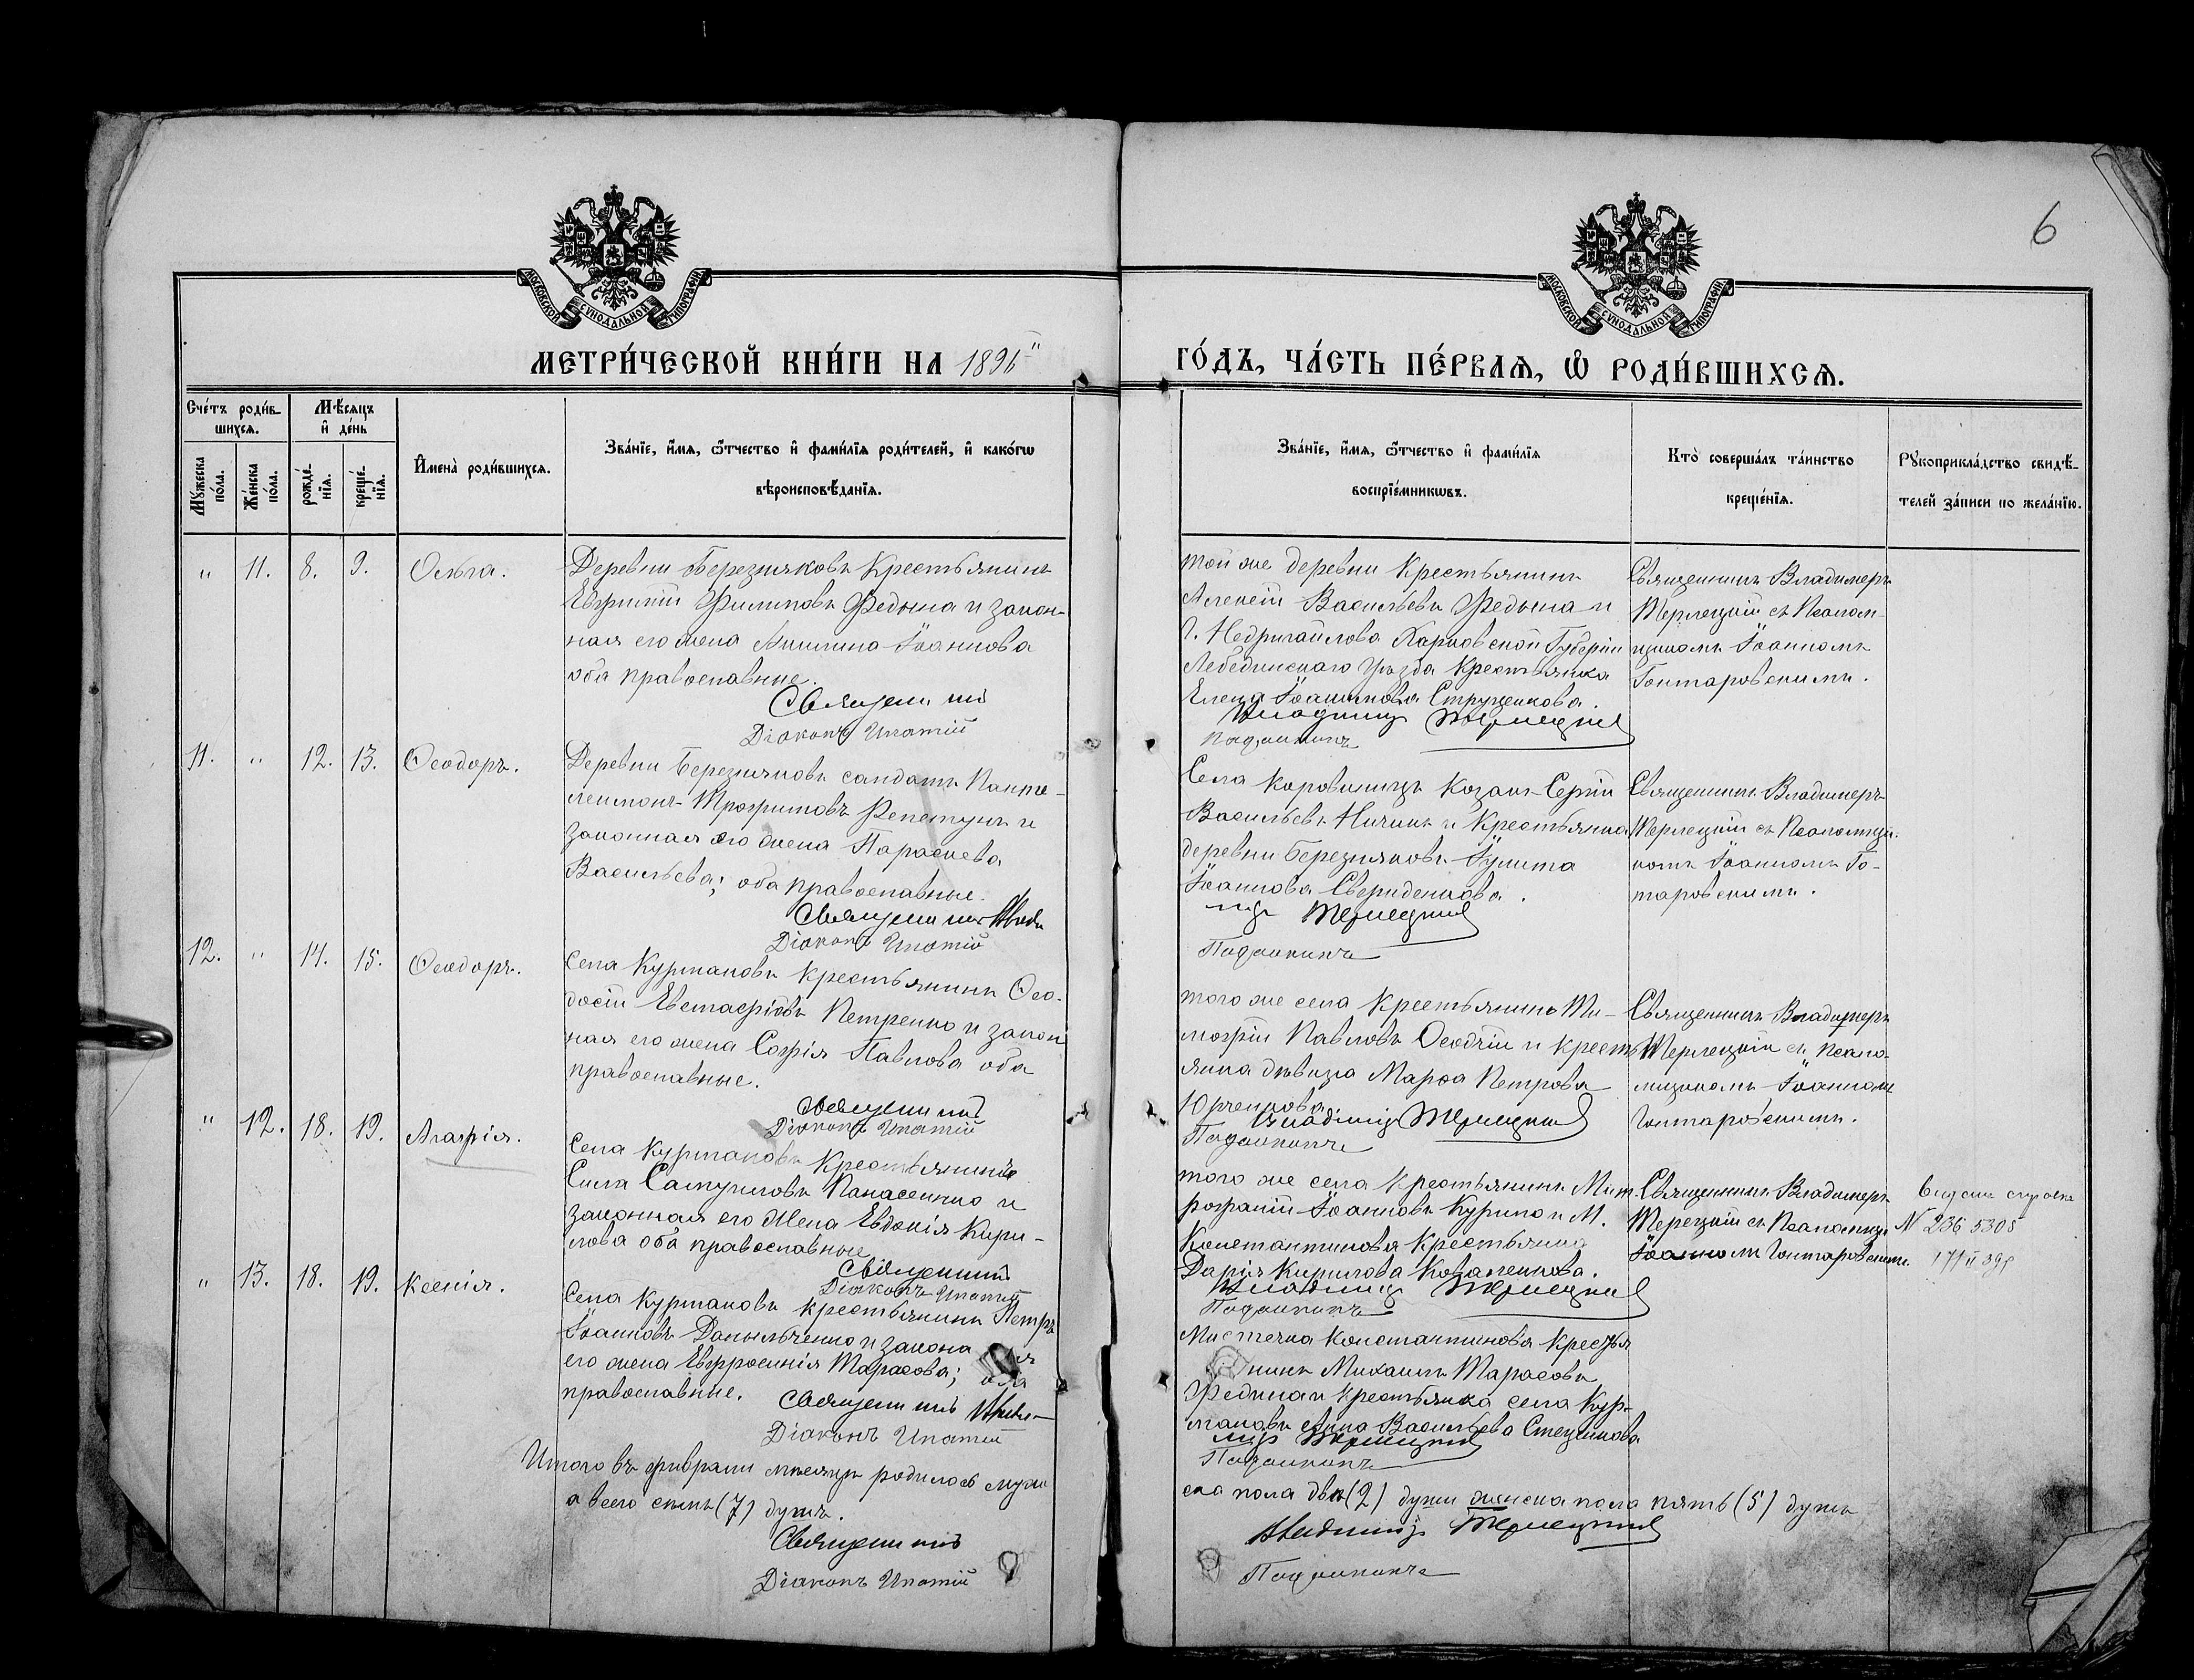 6
МОСКОВСКОЙ СѴНОДАЛЬНОЙ ТИПОГРАФІИ
МОСКОВСКОЙ СѴНОДАЛЬНОЙ ТИПОГРАФІИ
МЕТРИ́ЧЕСКОЙ КНИ́ГИ НА 1896
ГО́ДЪ, ЧА́СТЬ ПЕ́РВАѦ, Ѡ҆ РОДИ́ВШИХСѦ.
Сче́тъ роди́в-
шихсѧ.
Мꙋ́жеска по́ла.
Же́нска по́ла.
Мѣ́сѧцъ и҆ де́нь
рожде́-нїѧ.
креще́-нїѧ.
И҆мена̀ роди́вшихсѧ.
Зва́нїе, и҆́мѧ, ѻ҆́тчество и҆ фами́лїѧ роди́телей, и҆ како́гѡ
вѣроисповѣ́данїѧ.
Зва́нїе, и҆́мѧ, ѻ҆́тчество и҆ фами́лїѧ
воспрїе́мникѡвъ.
Кто̀ соверша́лъ та́инство
креще́нїѧ.
Рꙋкоприкла́дство свидѣ́-
телей за́писи по жела́нїю.
" 11. 8. 9. Ольга.
Деревни Березняковъ Крестьянинъ
Евфимій Филиповъ Федына и закон-
ная его жена Акилина Іоаннова
оба православные.
Священникъ
Діаконъ Ипатій
той же деревни Крестьянинъ
Алексій Васильевъ Федына и
г. Недригайлова Харковской Губерніи
Лебединскаго Уѣзда Крестьянка
Елена Іоаннова Струценкова.
Владиміръ Терлецкій
Священникъ Владимеръ
Терлецкій съ Псалом-
щикомъ Іоанномъ
Гонтаровскимъ.
11. " 12. 13. Ѳеодоръ.
Деревни Березняковъ салдатъ Панте-
леимонъ Трофимовъ Репетунъ и
законная его жена Параскева
Васильева; оба православные.
Священникъ Влади
Діаконъ Ипатій
Села Коровинецъ Козакъ Сергій
Васильевъ Ничикъ и Крестьянка
деревни Березняковъ Іулита
Іоаннова Свериденкова.
міръ Терлецкій
Священникъ Владимеръ
Терлецкій съ Псаломщи-
комъ Іоанномъ Го-
таровскимъ.
12. " 14. 15. Ѳеодоръ.
Села Курмановъ Крестьянинъ Ѳео-
досій Евстафіевъ Петренко и закон
ная его жена Софія Павлова оба
православные.
Священникъ
Діаконъ Ипатій
того же села Крестьянинъ Ти-
мофій Павловъ и кресть
янка дѣвица Марѳа Петрова
Юрченкова
Владиміръ Терлецкій
Священникъ Владимеръ
Терлецкій съ Псало-
мщикомъ Іоанномъ
Гонтаровскимъ.
" 12. 18. 19. Агафія.
Села Курмановъ Крестьянинъ
Сила Самуиловъ Панасенко и
законная его жена Евдокія Кири-
лова оба православные
Священникъ
Діаконъ Ипатій
того же села Крестьянинъ Мит-
рофаній Іоанновъ Курило и М.
Константинова Крестьянка
Дарія Кирилова Коваленкова.
Владиміръ Терлецкій
Священникъ Владимеръ
Терлецкій съ Псаломщи
Іоанномъ Гонтаровскимъ.
N 236 5305
" 13. 18. 19. Ксенія.
Села Курмановъ крестьянинъ Петръ
Іоанновъ Данильченко и законная
его жена Евфросинія Тарасова; оба
православные.
Священникъ Влади
Діаконъ Ипатій
Мистечка Константинова Крестья
нинъ Михаилъ Тарасовъ
Федына и Крестьянка села Кур-
мановъ Анна Васильева Стеценкова
міръ Терлецкій
Итого въ февралѣ мѣсяцѣ родилось муже
ска пола двѣ (2) души женска пола пять (5) душъ
а всего семь (7) душъ.
Священникъ
Владиміръ Терлецкій
Діаконъ Ипатій